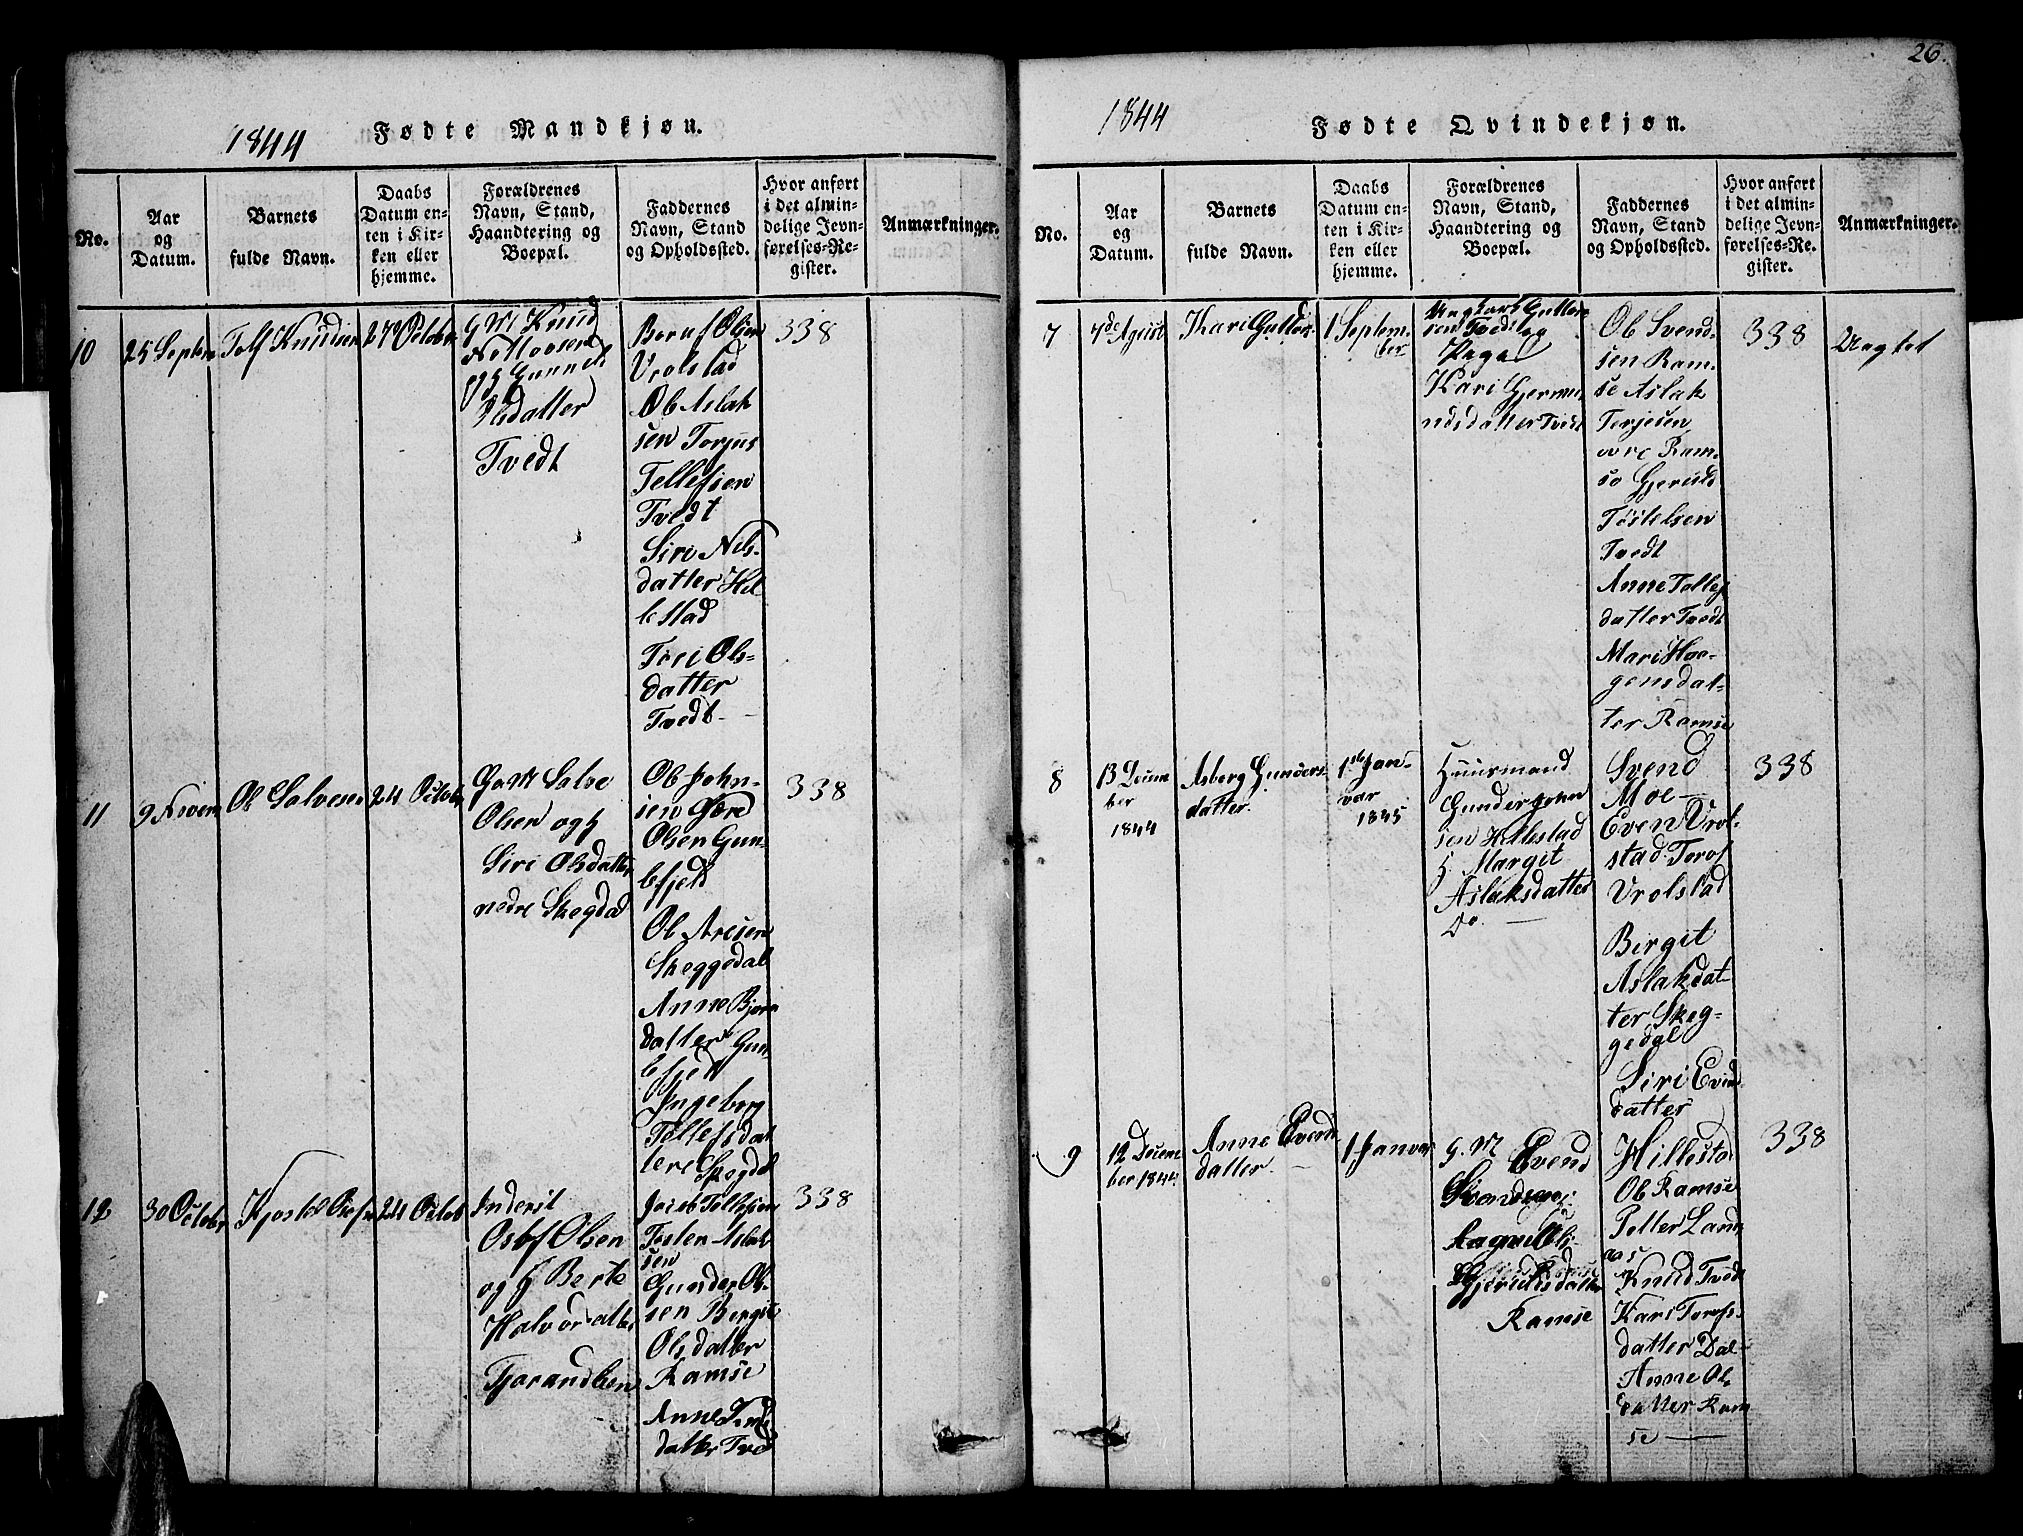 26.
1844
Fødte Mandkjøn.
No.
Aar
og
Datum.
Barnets
fulde Navn.
Daabs
Datum en-
ten i Kir-
ken eller
hjemme.
Forældrenes
Navn, Stand,
Haandtering og
Boepæl.
Faddernes
Navn, Stand
og Opholdssted.
Hvor anført
i det almin-
delige Jevn-
førelses-Re-
gister.
Anmærkninger.
10
25 Septem
Tolf Knudsen
27 Octobr
G M Knud
og h Gunnild
datter
Tvedt
Olsen
Vrolstad
Ob Aslak
sen Torjus
Tellefsen
Tvedt
Siri Nels-
datter Hil
lestad
Tori Ols-
datter
Tvedt-
338
11
9 Novem
Ol Salvesen
24 Octobr
G M Salve
Olsen og h
Siri Olsdatter
nedre Skegdal
Ob John-
sen Gere
Olsen Gun-
lefjeld
Ob Aresen
Skeggedal
Anne Bjorn
datter Gun
lefjed
Ingeborg
Tellefsdat
tere Skegdal
338
12
30 Octobr
24 Octob
Inderst
Osuf Olsen
og h Berte
Halvordatter
Tjorandlien
Jacob Tellefsen
Tosten Aslak
sen
Gunder Ol-
sen Bergit
Olsdatter
Ramse
Anne
datter Tved
338
1844
Fødte Qvindekjøn.
No.
Aar
og
Datum.
Barnets
fulde Navn.
Daabs
Datum en-
ten i Kir-
ken eller
hjemme.
Forældrenes
Navn, Stand,
Haandtering og
Boepæl.
Faddernes
Navn, Stand
og Opholdssted.
Hvor anført
i det almin-
delige Jevn-
førelses-Re-
gister.
Anmærkninger.
7
7de Agust
Kari Guttors
1 Septem-
ber
Ungkarl Guttorm
sen Tvedt og
Page
Kari Gjermu
ndsdatter Tvedt
Ob Svend-
sen Ram-
se Aslak
Terjesen
øvre Ram-
se Gjeruld
Tostelsen
Tvedt
Anne Tollef
datter Tvedt
Mari Haa-
gensdat-
ter Ramse
338
Uegtet
8
13 Decem
ber
1844
Asberg Gunders
datter.
1ste Jan-
var
1845
Huusmand
Gunder John
sen Hillestad
h Margit
Aslaksdatter
Do
Svend
Moe-
Even Vrol-
stad Torof
Vrolstad
Birgit
Aslakdat-
ter Skeg-
gedal
Siri Evind
datter
338
9
12 Decem
ber 1844
Anne Evend
datter.
1 Janvar
G. M Evend
Svendsen
Aagnild
Gjeruldsdatter
Ramse
Hillestad
Ob Ramse
Petter Land
aas
Knud Tvedt
Kari Torofs-
datter Dal-
Anne Ol
datter Ram
se
338